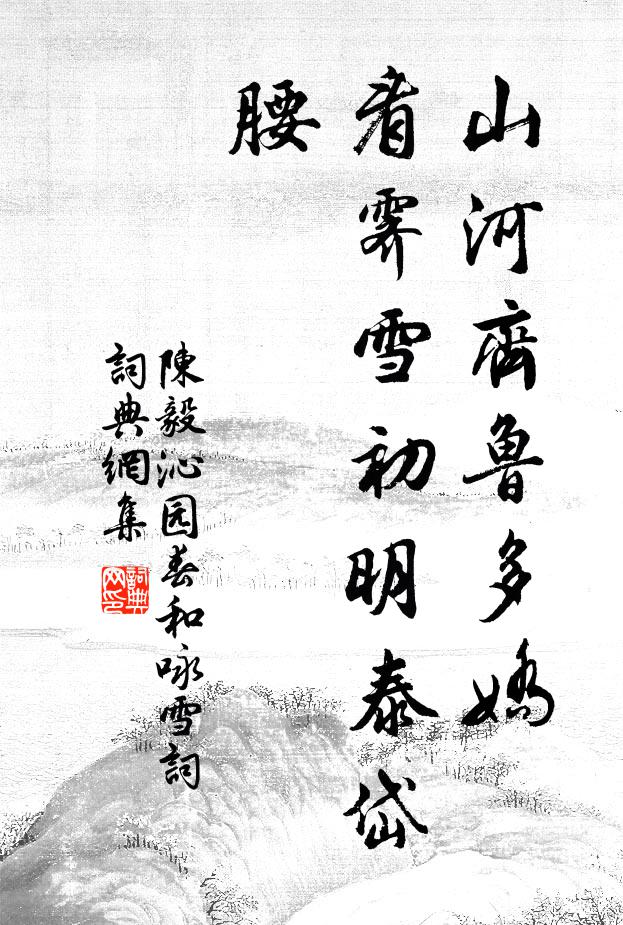 山河齊魯多嬌
看霽雪初明泰岱
腰
陳毅沁园春和咏雪詞
詞典網集
詞典
网印